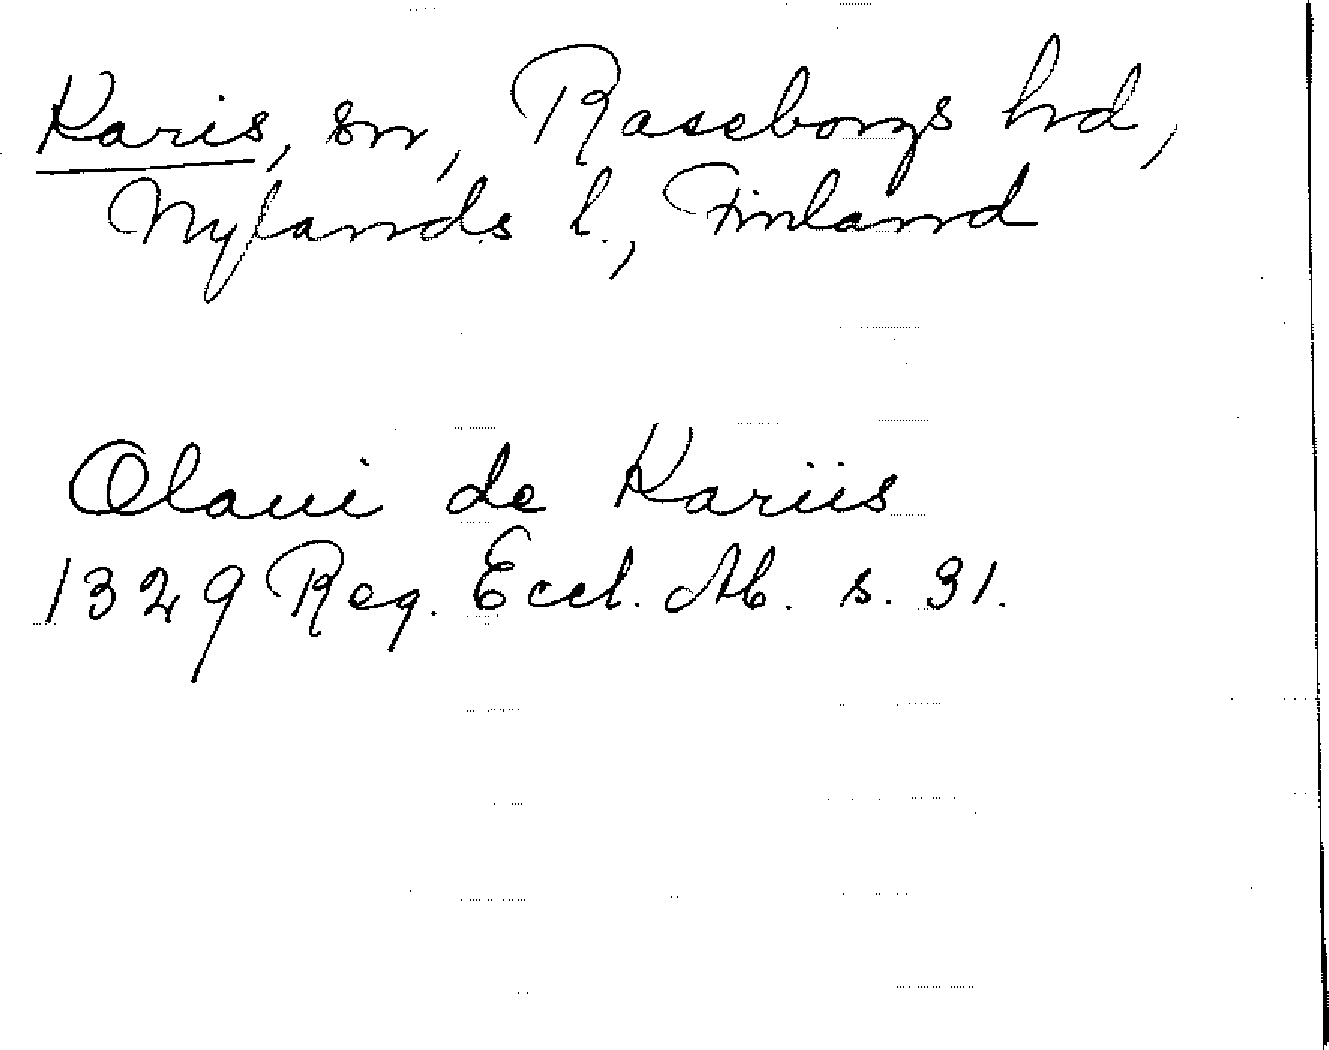 Karis, sn, Raseborgs hd,
Nylands l., Finland
Olaui de Kariis
1329 Reg. Eccl. Ab. s. 31.